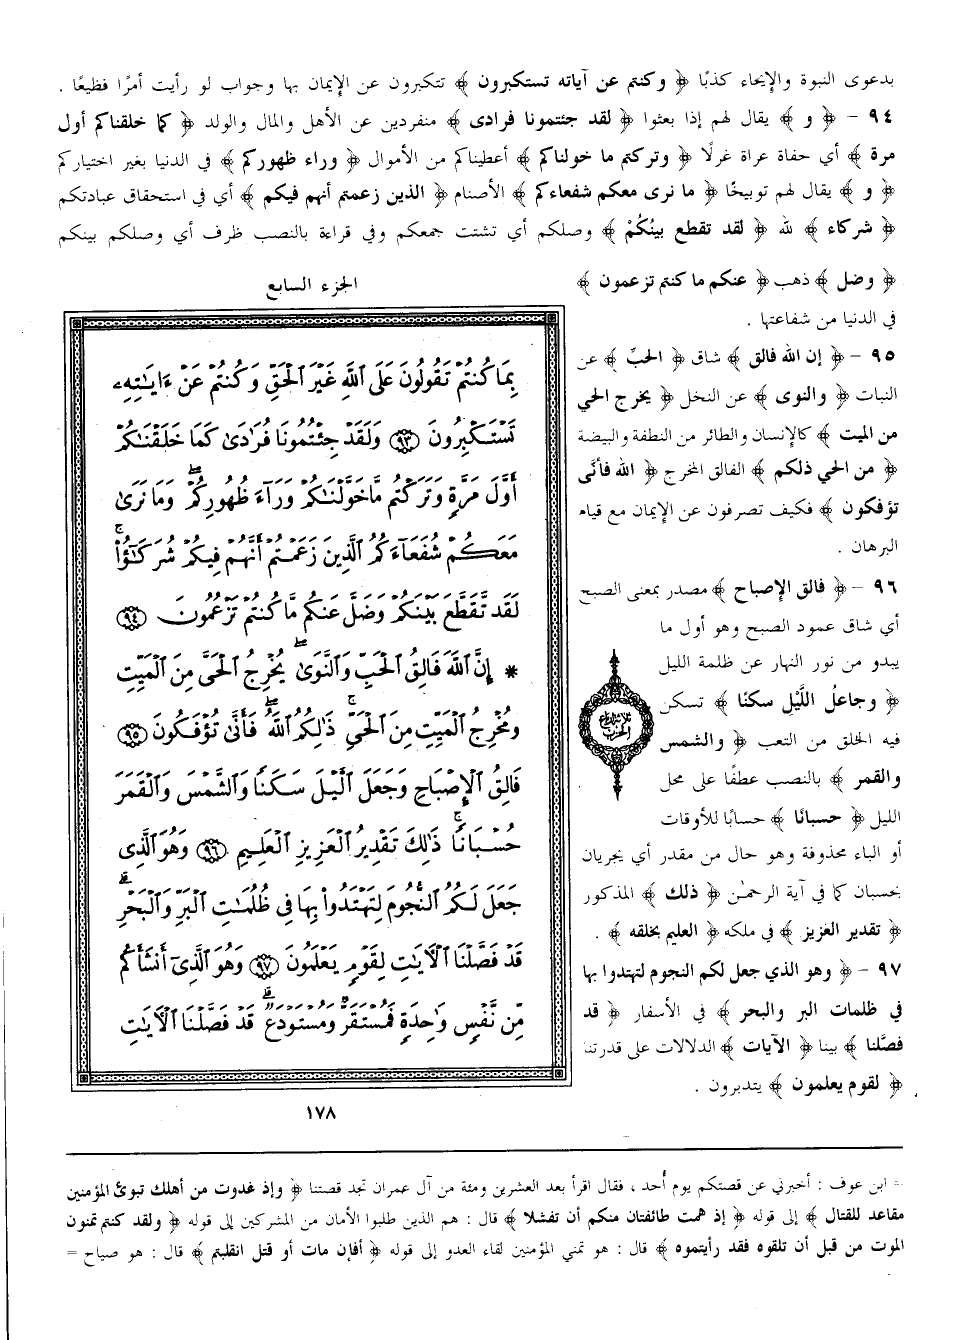 بدعوى النبوة والإيحاء كذبًا ﴿ وكنتم عن آياته تستكبرون ﴾ تتكبرون عن الإيمان بها وجواب لو رأيت أمرًا فظيعًا .
٩٤ – ﴿ و ﴾ يقال لهم إذا بعثوا ﴿ لقد جئتمونا فرادى ﴾ منفردين عن الأهل والمال والولد ﴿ كما خلقناكم أول
مرة ﴾ أي حفاة عراة غرلًا ﴿ وتركتم ما خولناكم ﴾ أعطيناكم من الأموال ﴿ وراء ظهوركم ﴾ في الدنيا بغير اختياركم
﴿ و ﴾ يقال لهم توبيخًا ﴿ ما نرى معكم شفعاءكم ﴾ الأصنام ﴿ الذين زعمتم أنهم فيكم ﴾ أي في استحقاق عبادتكم
﴿ شركاء ﴾ لله ﴿ لقد تقطع بينُكُمْ ﴾ وصلكم أي تشتت جمعكم وفي قراءة بالنصب ظرف أي وصلكم بينكم
﴿ وضل ﴾ ذهب ﴿ عنكم ما كنتم تزعمون ﴾
في الدنيا من شفاعتها .
٩٥ – ﴿ إن الله فالق ﴾ شاق ﴿ الحبِّ ﴾ عن
النبات ﴿ والنوى ﴾ عن النخل ﴿ يخرج الحي
من الميت ﴾ كالإنسان والطائر من النطفة والبيضة
﴿ من الحي ذلكم ﴾ الفالق المخرج ﴿ الله فأنَّى
تؤفكون ﴾ فكيف تصرفون عن الإيمان مع قيام
البرهان .
٩٦ – ﴿ فالق الإصباح ﴾ مصدر بمعنى الصبح
أي شاق عمود الصبح وهو أول ما
يبدو من نور النهار عن ظلمة الليل
﴿ وجاعلُ اللَّيْل سكنًا ﴾ تسكن
فيه الخلق من التعب ﴿ والشمس
والقمر ﴾ بالنصب عطفًا على محل
الليل ﴿ حسبانًا ﴾ حسابًا للأوقات
أو الباء محذوفة وهو حال من مقدر أي يجريان
بحسبان كما في آية الرحمٰن ﴿ ذلك ﴾ المذكور
﴿ تقدير العزيز ﴾ في ملكه ﴿ العليم بخلقه ﴾ .
٩٧ – ﴿ وهو الذي جعل لكم النجوم لتهتدوا بها
في ظلمات البر والبحر ﴾ في الأسفار ﴿ قد
فصَّلنا ﴾ بينا ﴿ الآيات ﴾ الدلالات على قدرتنا
﴿ لقوم يعلمون ﴾ يتدبرون .
الجزء السابع
بِمَا كُنتُمْ تَقُولُونَ عَلَى ٱللَّهِ غَيْرَ ٱلْحَقِّ وَكُنتُمْ عَنْ ءَايَٰتِهِۦ
تَسْتَكْبِرُونَ ٩٣ وَلَقَدْ جِئْتُمُونَا فُرَٰدَىٰ كَمَا خَلَقْنَٰكُمْ
أَوَّلَ مَرَّةٍ وَتَرَكْتُم مَّا خَوَّلْنَٰكُمْ وَرَآءَ ظُهُورِكُمْ ۖ وَمَا نَرَىٰ
مَعَكُمْ شُفَعَآءَكُمُ ٱلَّذِينَ زَعَمْتُمْ أَنَّهُمْ فِيكُمْ شُرَكَٰٓؤُا۟ ۚ
لَقَد تَّقَطَّعَ بَيْنَكُمْ وَضَلَّ عَنكُم مَّا كُنتُمْ تَزْعُمُونَ ٩٤
* إِنَّ ٱللَّهَ فَالِقُ ٱلْحَبِّ وَٱلنَّوَىٰ ۖ يُخْرِجُ ٱلْحَىَّ مِنَ ٱلْمَيِّتِ
وَمُخْرِجُ ٱلْمَيِّتِ مِنَ ٱلْحَىِّ ۚ ذَٰلِكُمُ ٱللَّهُ ۖ فَأَنَّىٰ تُؤْفَكُونَ ٩٥
فَالِقُ ٱلْإِصْبَاحِ وَجَعَلَ ٱلَّيْلَ سَكَنًا وَٱلشَّمْسَ وَٱلْقَمَرَ
حُسْبَانًا ۚ ذَٰلِكَ تَقْدِيرُ ٱلْعَزِيزِ ٱلْعَلِيمِ ٩٦ وَهُوَ ٱلَّذِى
جَعَلَ لَكُمُ ٱلنُّجُومَ لِتَهْتَدُوا۟ بِهَا فِى ظُلُمَٰتِ ٱلْبَرِّ وَٱلْبَحْرِ ۗ
قَدْ فَصَّلْنَا ٱلْءَايَٰتِ لِقَوْمٍ يَعْلَمُونَ ٩٧ وَهُوَ ٱلَّذِىٓ أَنشَأَكُم
مِّن نَّفْسٍ وَٰحِدَةٍ فَمُسْتَقَرٌّ وَمُسْتَوْدَعٌ ۗ قَدْ فَصَّلْنَا ٱلْءَايَٰتِ
١٧٨
= ابن عوف : أخبرني عن قصتكم يوم أُحد ، فقال اقرأ بعد العشرين ومئة من آل عمران تجد قصتنا ﴿ وإذ غدوت من أهلك تبوئ المؤمنين
مقاعد للقتال ﴾ إلى قوله ﴿ إذ همت طائفتان منكم أن تفشلا ﴾ قال : هم الذين طلبوا الأمان من المشركين إلى قوله ﴿ ولقد كنتم تمنون
الموت من قبل أن تلقوه فقد رأيتموه ﴾ قال : هو تمني المؤمنين لقاء العدو إلى قوله ﴿ أفإن مات أو قتل انقلبتم ﴾ قال : هو صياح =